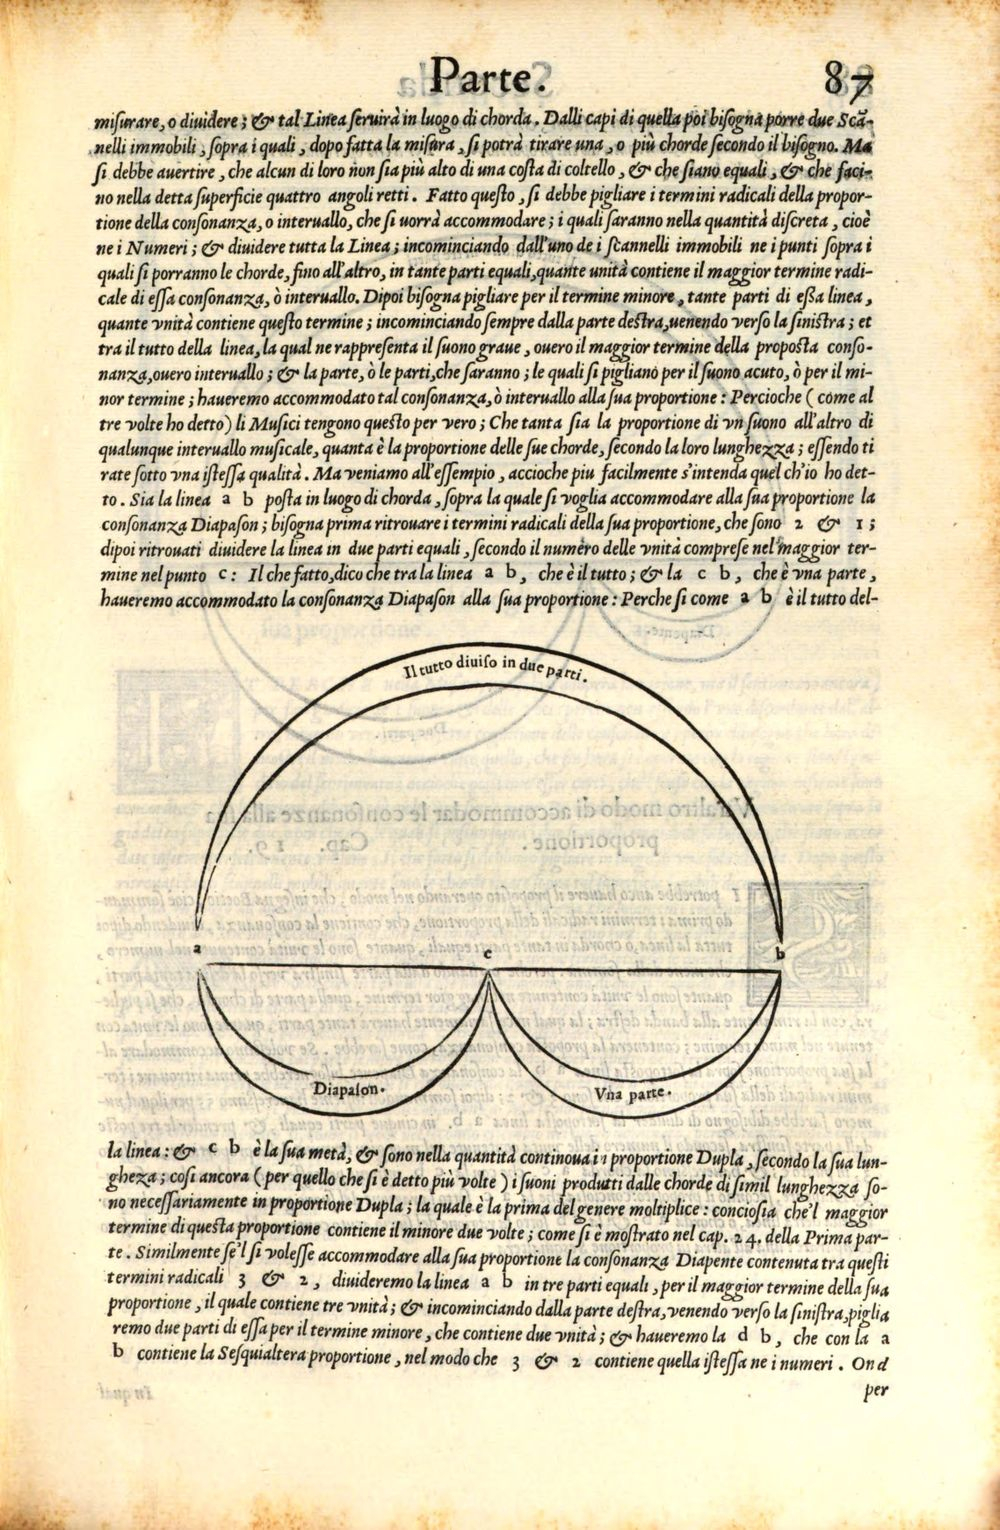 Parte. 87
miſurare, o diuidere; & tal Linea ſeruirà in luogo di chorda. Dalli capi di quella poi biſogna porre due Scã-
nelli immobili, ſopra i quali, dopo fatta la miſura, ſi potrà tirare una, o più chorde ſecondo il biſogno. Ma
ſi debbe auertire, che alcun di loro non ſia più alto di una coſta di coltello, & che ſiano equali, & che faci-
no nella detta ſuperficie quattro angoli retti. Fatto queſto, ſi debbe pigliare i termini radicali della propor-
tione della conſonanza, o interuallo, che ſi uorrà accommodare; i quali ſaranno nella quantità diſcreta, cioè
ne i Numeri; & diuidere tutta la Linea; incominciando dall'uno de i ſcannelli immobili ne i punti ſopra i
quali ſi porranno le chorde, fino all'altro, in tante parti equali, quante unità contiene il maggior termine radi-
cale di eſſa conſonanza, ò interuallo. Dipoi biſogna pigliare per il termine minore, tante parti di eßa linea,
quante vnità contiene queſto termine; incominciando ſempre dalla parte deſtra, uenendo verſo la ſiniſtra; et
tra il tutto della linea, la qual ne rappreſenta il ſuono graue, ouero il maggior termine della propoſta conſo-
nanza, ouero interuallo; & la parte, ò le parti, che ſaranno; le quali ſi pigliano per il ſuono acuto, ò per il mi-
nor termine; haueremo accommodato tal conſonanza, ò interuallo alla ſua proportione: Percioche (come al
tre volte ho detto) li Muſici tengono queſto per vero; Che tanta ſia la proportione di vn ſuono all'altro di
qualunque interuallo muſicale, quanta è la proportione delle ſue chorde, ſecondo la loro lunghezza; eſſendo ti
rate ſotto vna iſteſſa qualità. Ma veniamo all'eſſempio, accioche piu facilmente s'intenda quel ch'io ho det-
to. Sia la linea a b poſta in luogo di chorda, ſopra la quale ſi voglia accommodare alla ſua proportione la
conſonanza Diapaſon; biſogna prima ritrouare i termini radicali della ſua proportione, che ſono 2 & 1;
dipoi ritrouati diuidere la linea in due parti equali, ſecondo il numero delle vnità compreſe nel maggior ter-
mine nel punto c: Il che fatto, dico che tra la linea a b, che è il tutto; & la c b, che è vna parte,
haueremo accommodato la conſonanza Diapaſon alla ſua proportione: Perche ſi come a b è il tutto del-
Il tutto diuiſo in due parti.
a c b
Diapaſon. Vna parte.
la linea: & c b è la ſua metà, & ſono nella quantità continoua in proportione Dupla, ſecondo la ſua lun-
gheza; coſi ancora (per quello che ſi è detto più volte) i ſuoni produtti dalle chorde di ſimil lunghezza ſo-
no neceſſariamente in proportione Dupla; la quale è la prima del genere moltiplice: concioſia che'l maggior
termine di queſta proportione contiene il minore due volte; come ſi è moſtrato nel cap. 24. della Prima par-
te. Similmente ſe'l ſi voleſſe accommodare alla ſua proportione la conſonanza Diapente contenuta tra queſti
termini radicali 3 & 2, diuideremo la linea a b in tre parti equali, per il maggior termine della ſua
proportione, il quale contiene tre vnità; & incominciando dalla parte deſtra, venendo verſo la ſiniſtra, piglia
remo due parti di eſſa per il termine minore, che contiene due vnità; & haueremo la d b, che con la a
b contiene la Seſquialtera proportione, nel modo che 3 & 2 contiene quella iſteſſa ne i numeri. Ond
per